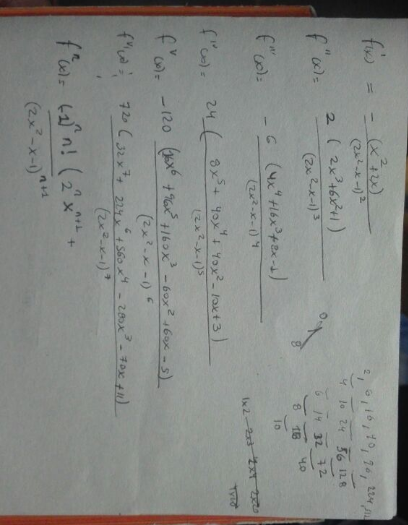 f'(x) = - (x²+2x) / (2x²-x-1)²
f''(x) = 2 (2x³+6x²+1) / (2x²-x-1)³
f'''(x) = - 6 (4x⁴+16x³+8x-1) / (2x²-x-1)⁴
f^IV(x) = 24 (8x⁵+40x⁴+40x²-10x+3) / (2x²-x-1)⁵
f^V(x) = -120 (16x⁶+96x⁵+160x³-60x²+60x-5) / (2x²-x-1)⁶
f^VI(x) = 720 (32x⁷+224x⁶+560x⁴-280x³-70x+11) / (2x²-x-1)⁷
f^n(x) = (-1)^n n! (2^n x^{n+1} + / (2x²-x-1)^{n+1}
4 10 24 56 128
6 14 32 72
8 18 40
10